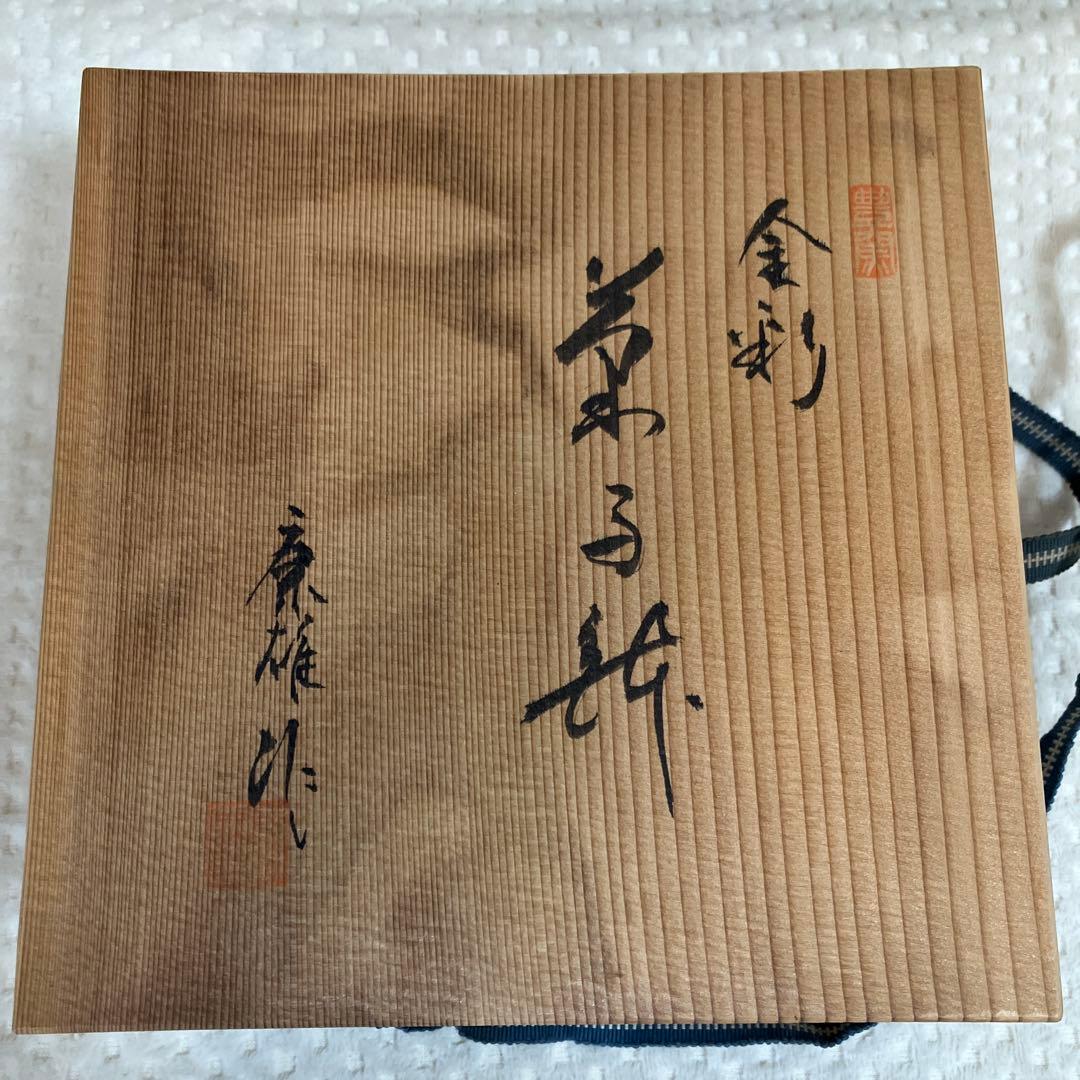 金彩
菓子鉢
康雄作